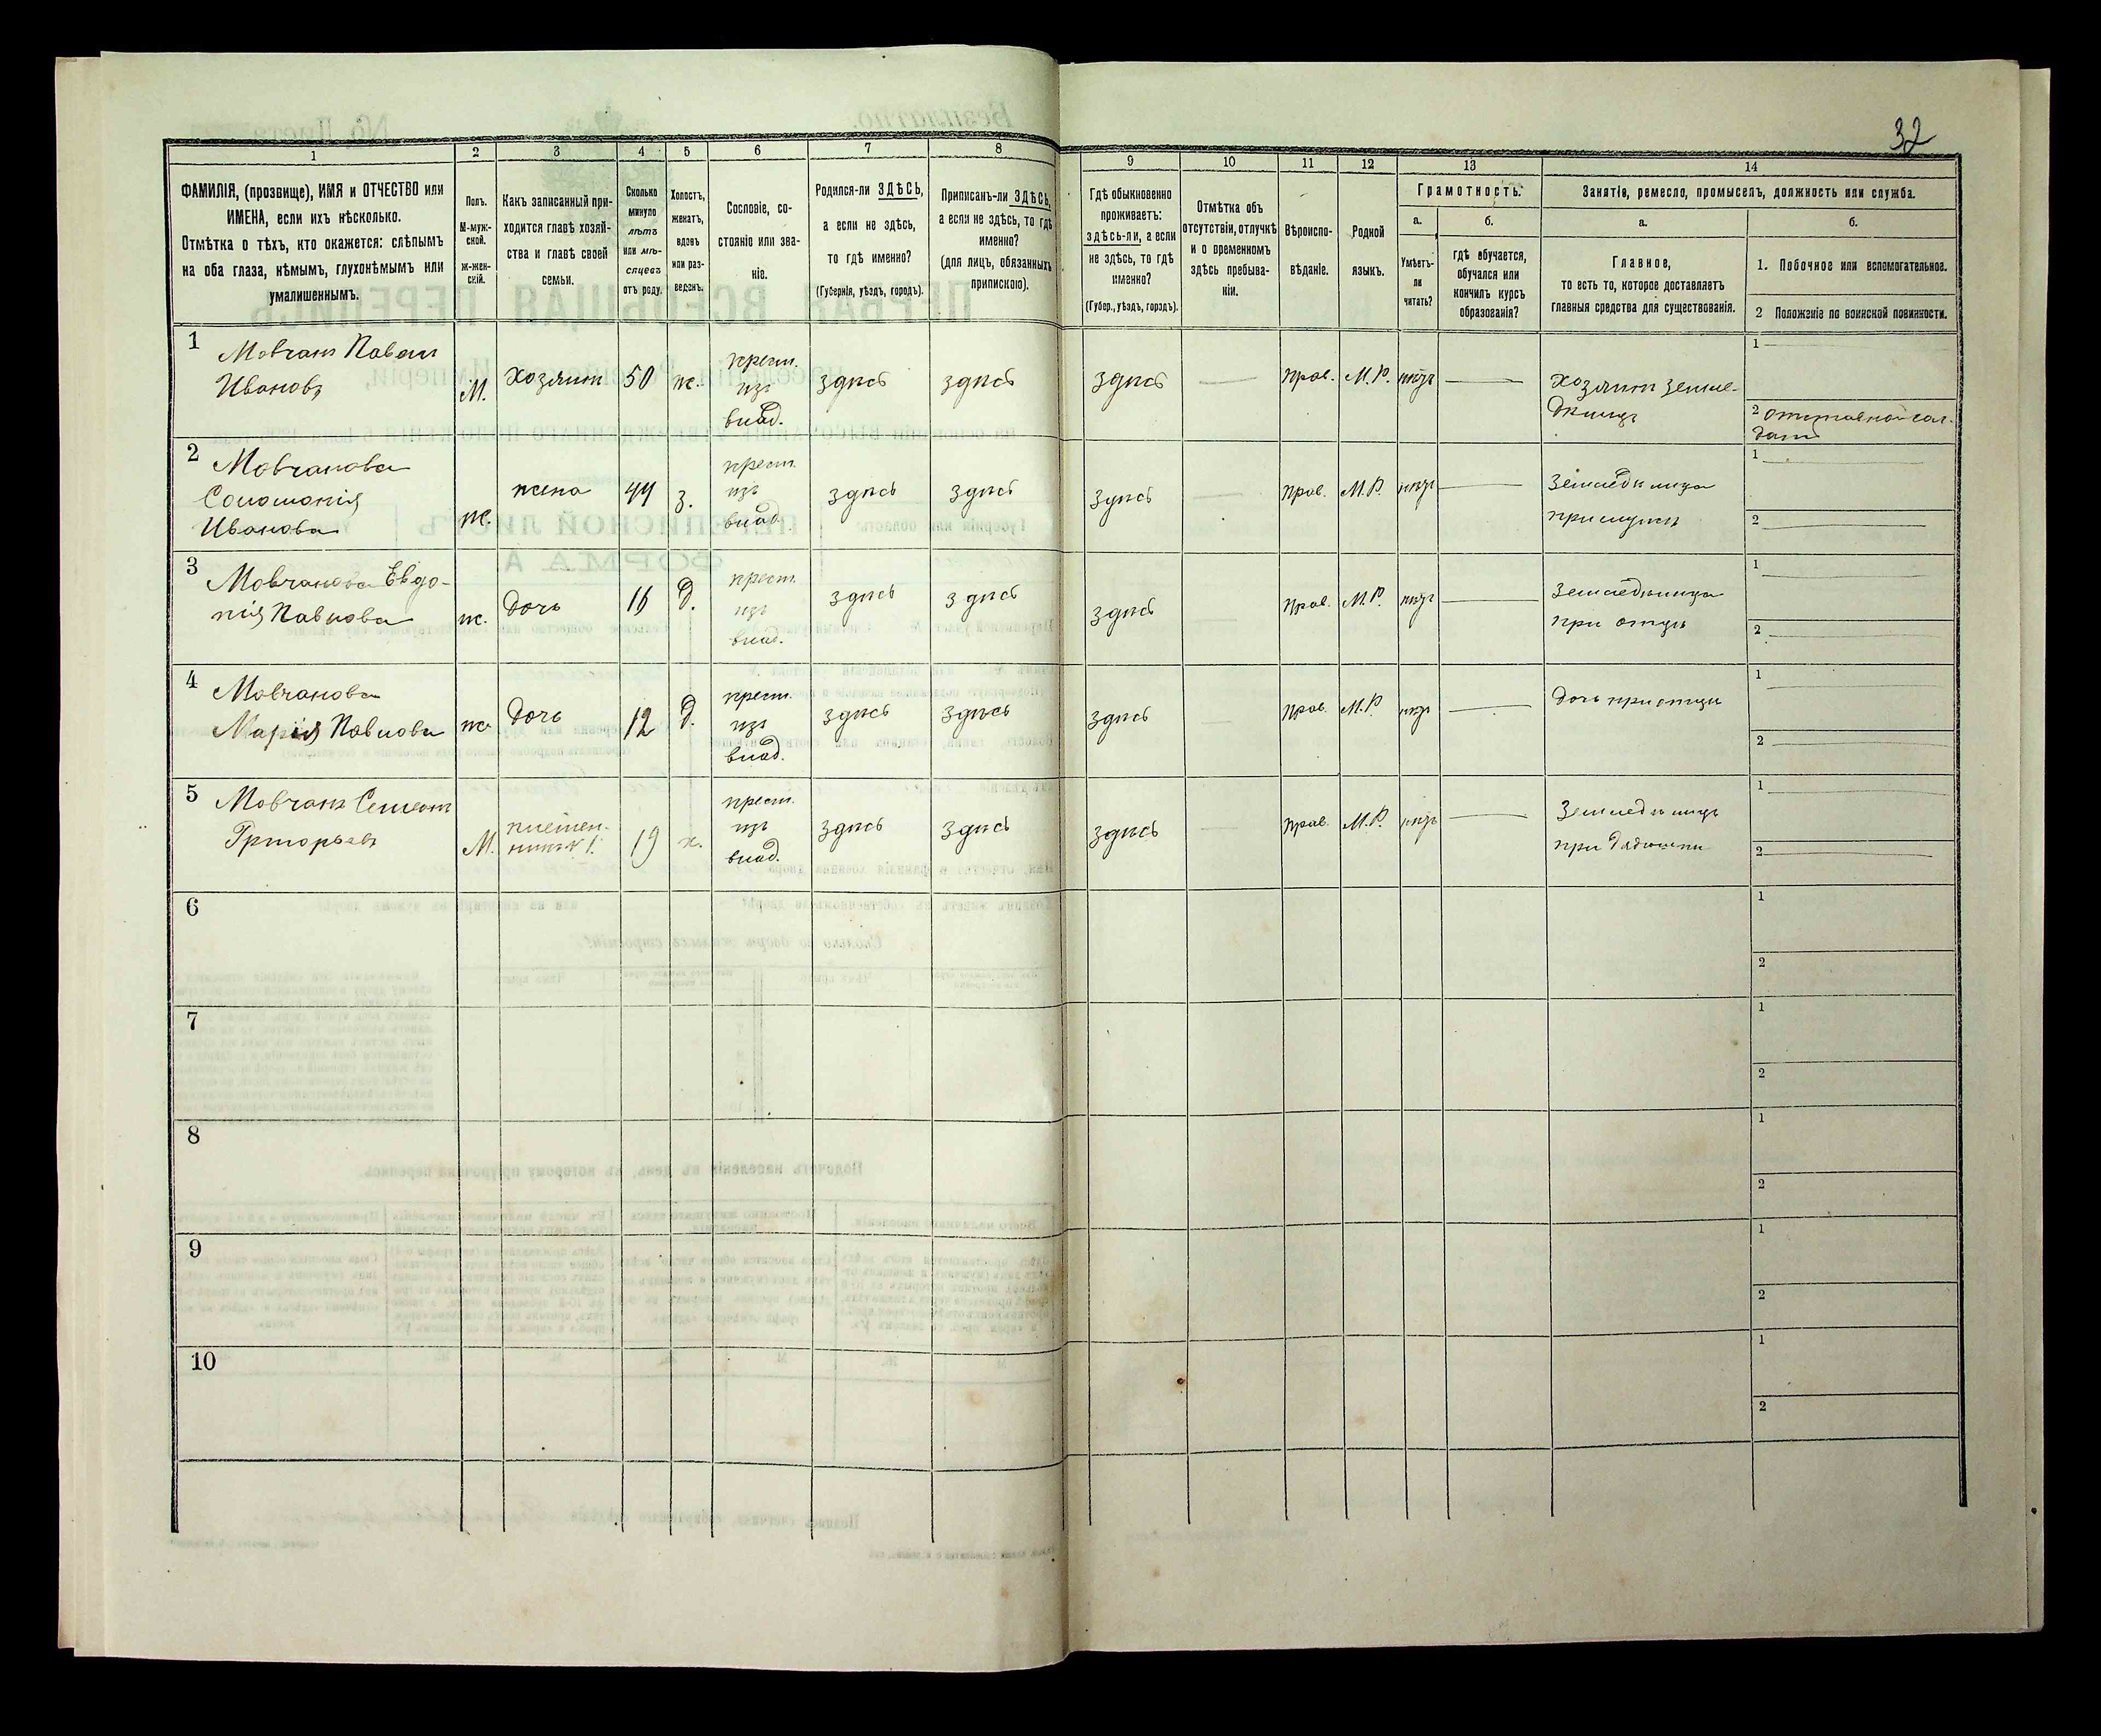 32
1 2 3 4 5 6 7 8 9 10 11 12 13 14
ФАМИЛІЯ, (прозвище), ИМЯ и ОТЧЕСТВО или
ИМЕНА, если ихъ нѣсколько.
Отмѣтка о тѣхъ, кто окажется: слѣпымъ
на оба глаза, нѣмымъ, глухонѣмымъ или
умалишеннымъ.
Полъ.
М-муж-
ской.
ж-жен-
скій.
Какъ записанный при-
ходится главѣ хозяй-
ства и главѣ своей
семьи.
Сколько
минуло
лѣтъ
или мѣ-
сяцевъ
отъ роду.
Холостъ,
женатъ,
вдовъ
или раз-
веденъ.
Сословіе, со-
стояніе или зва-
ніе.
Родился-ли ЗДѢСЬ,
а если не здѣсь,
то гдѣ именно?
(Губернія, уѣздъ, городъ).
Приписанъ-ли ЗДѢСЬ,
а если не здѣсь, то гдѣ
именно?
(для лицъ, обязанныхъ
припискою).
Гдѣ обыкновенно
проживаетъ:
здѣсь-ли, а если
не здѣсь, то гдѣ
именно?
(Губер., уѣздъ, городъ).
Отмѣтка объ
отсутствіи, отлучкѣ
и о временномъ
здѣсь пребыва-
ніи.
Вѣроиспо-
вѣданіе.
Родной
языкъ.
Грамотность.
а.
Умѣетъ-
ли
читать?
б.
гдѣ обучается,
обучался или
кончилъ курсъ
образованія?
Занятіе, ремесло, промыселъ, должность или служба.
а.
Главное,
то есть то, которое доставляетъ
главныя средства для существованія.
б.
1. Побочное или вспомогательное.
2 Положеніе по воинской повинности.
1
Мовчанъ Павелъ
Ивановъ
М.
хозяинъ
50
ж.
крест.
изъ
влад.
здѣсь
здѣсь
здѣсь
прав.
М.Р.
нѣтъ
хозяинъ земле-
дѣлецъ
1
2 отставной сол-
датъ
2
Мовчанова
Соломонія
Иванова
ж.
жена
44
з.
крест.
изъ
влад.
здѣсь
здѣсь
здѣсь
прав.
М.Р.
нѣтъ
Земледѣлица
при мужѣ
1
2
3
Мовчанова Евдо-
кія Павлова
ж.
дочь
16
д.
крест.
изъ
влад.
здѣсь
здѣсь
здѣсь
прав.
М.Р.
нѣтъ
Земледѣлица
при отцѣ
1
2
4
Мовчанова
Марія Павлова
ж.
дочь
12
д.
крест.
изъ
влад.
здѣсь
здѣсь
здѣсь
прав.
М.Р.
нѣтъ
дочь при отцѣ
1
2
5
Мовчанъ Семенъ
Григорьевъ
М.
племен-
никъ 1.
19
х.
крест.
изъ
влад.
здѣсь
здѣсь
здѣсь
прав.
М.Р.
нѣтъ
Земледѣлецъ
при дядюшки
1
2
6
1
2
7
1
2
8
1
2
9
1
2
10
1
2